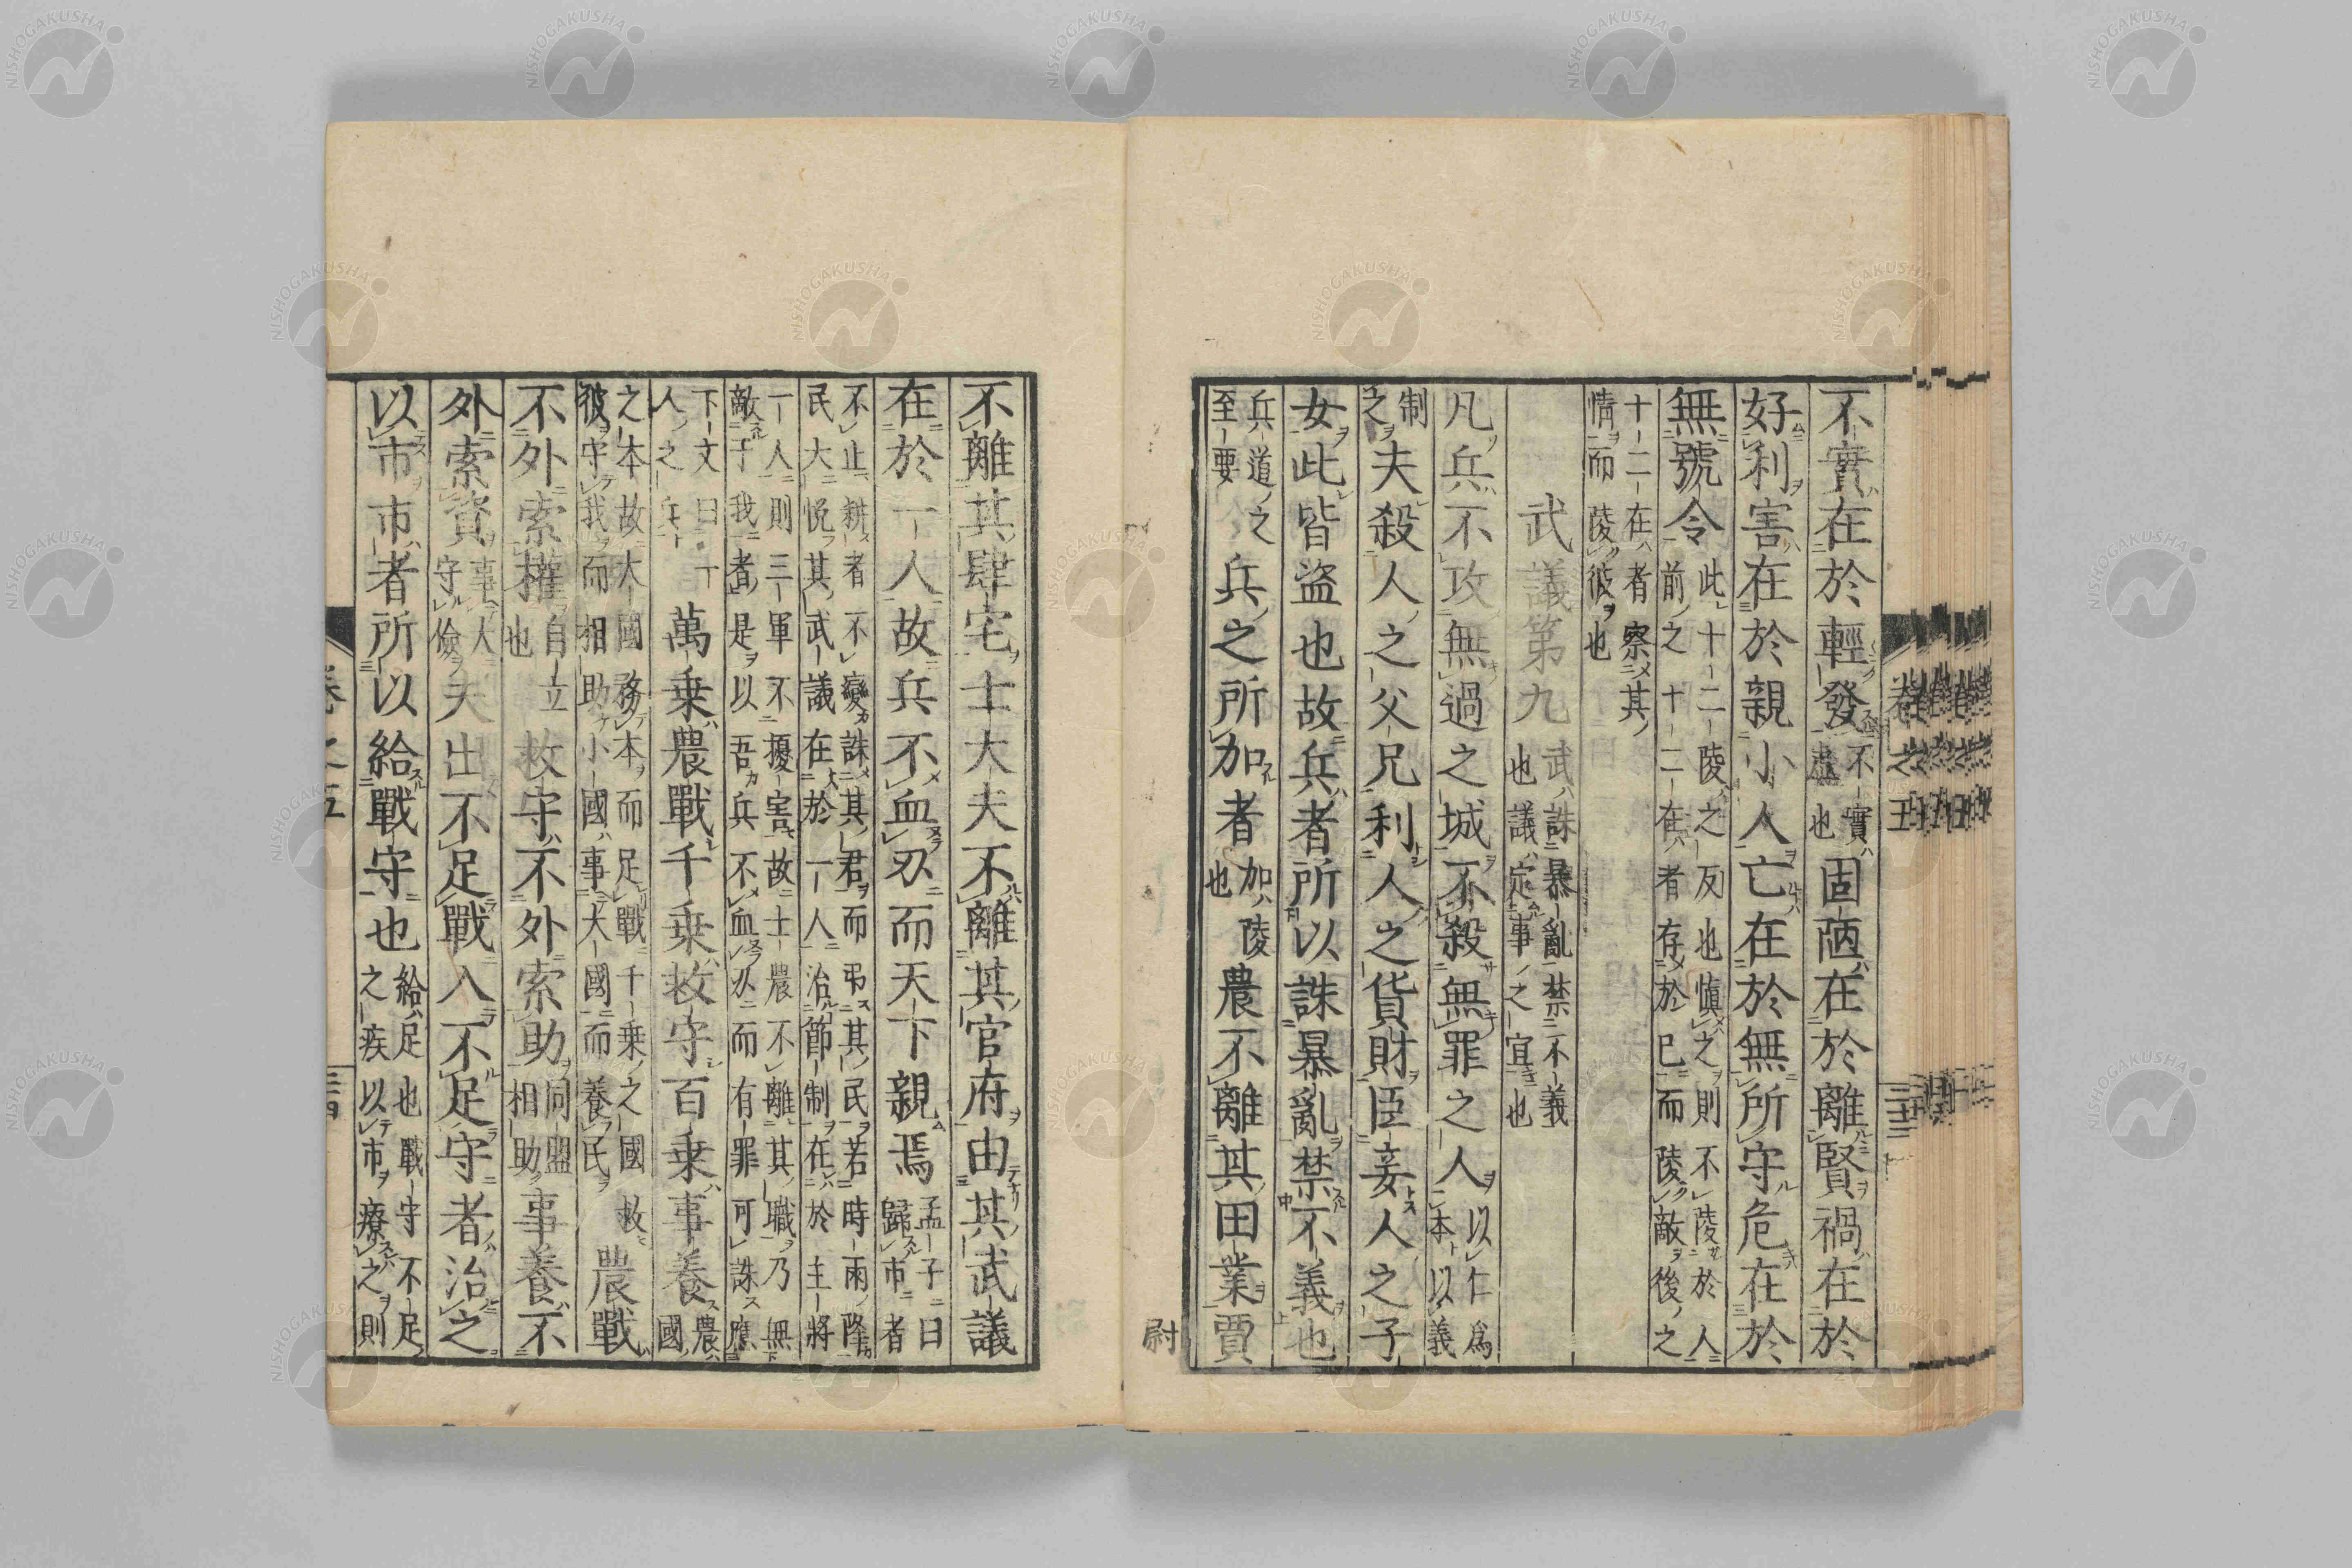 不實在於輕發不實虛也固陋在於離賢禍在於
好利害在於親小人亡在於無所守危在於
無號令此十二陵之反也慎之則不陵於人前之十二在者存於已而陵敵後之
十二在者察其情而陵彼也
武議第九武誅暴亂禁不義也議定事之宜也
凡兵不攻無過之城不殺無罪之人以仁爲本以義
制之夫殺人之父兄利人之貨財臣妾人之子
女此皆盜也故兵者所以誅暴亂禁不義也
兵道之至要兵之所加者加陵也農不離其田業賈
尉
不離其肆宅士大夫不離其官府由其武議
在於一人故兵不血刃而天下親焉孟子曰歸市者
不止耕者不變誅其君而弔其民若時雨降民大悅其武議在於一人治節制在於主將
一人則三軍不擾害故士農不離其職乃無敵于我者是以吾兵不血刃而有罪可誅應
下文曰一人之兵萬乘農戰千乘救守百乘事養農國
之本故大國務本而足戰千乘之國救彼守我而相助小國事大國而養民農戰
不外索權自立也救守不外索助同盟相助事養不
外索資事人守儉夫出不足戰入不足守者治之
以市市者所以給戰守也給足也戰守不足之疾以市療之則